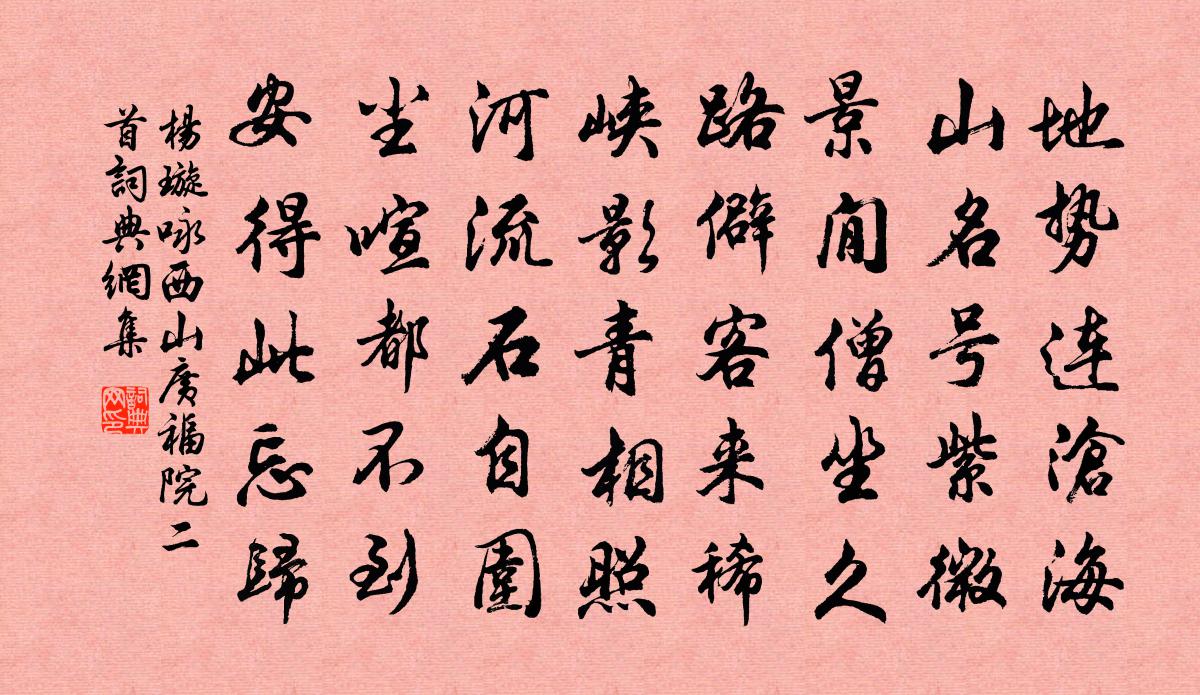 地势连滄海
山名号紫微
景閒僧坐久
路僻客来稀
峡影青相照
河流石自圍
尘喧都不到
安得此忘歸
楊璇咏西山广福院二
首詞典網集
詞典网印